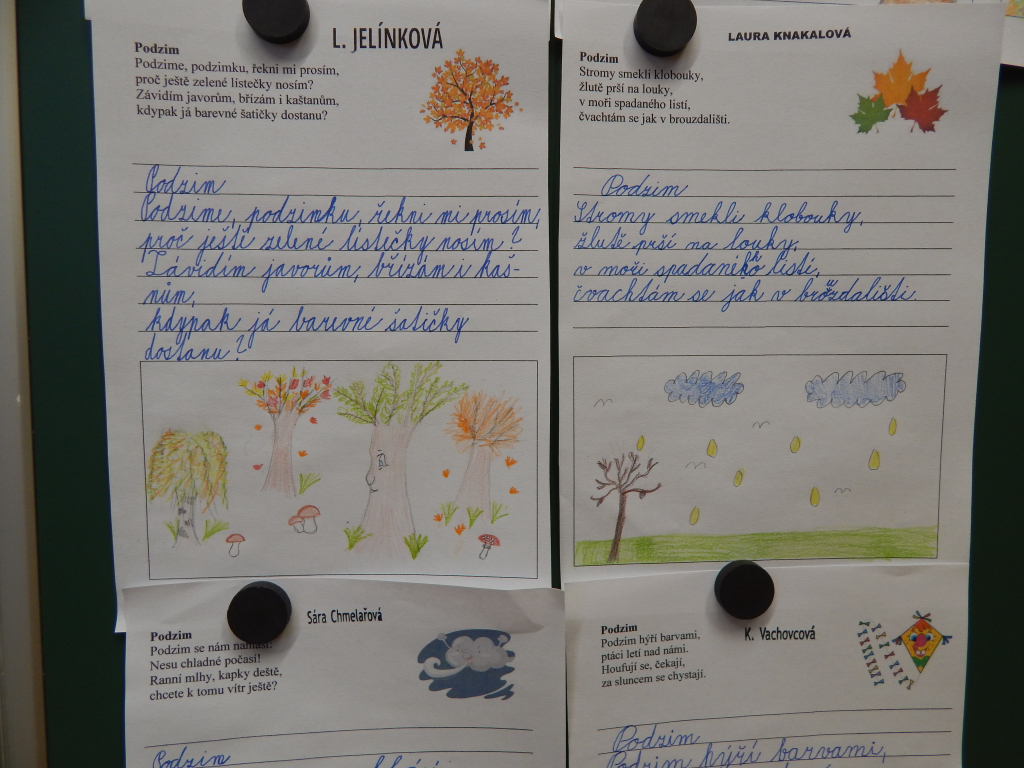 L. JELÍNKOVÁ
Podzim
Podzime, podzimku, řekni mi prosím,
proč ještě zelené lístečky nosím?
Závidím javorům, břízám i kaštanům,
kdypak já barevné šatičky dostanu?
Podzim
Podzime, podzimku, řekni mi prosím,
proč ještě zelené lístečky nosím?
Závidím javorům, břízám i kaš-
nům,
kdypak já barevné šatičky
dostanu?
LAURA KNAKALOVÁ
Podzim
Stromy smekli klobouky,
žlutě prší na louky,
v moři spadaného listí,
čvachtám se jak v brouzdališti.
Podzim
Stromy smekli klobouky,
žlutě prší na louky,
v moři spadaného listí,
čvachtám se jak v brouzdališti.
Sára Chmelařová
Podzim
Podzim se nám
Nesu chladné počasí!
Ranní mlhy, kapky deště,
chcete k tomu vítr ještě?
Podzim
K. Vachovcová
Podzim
Podzim hýří barvami,
ptáci letí nad námi.
Houfují se, čekají,
za sluncem se chystají.
Podzim
Podzim hýří barvami,